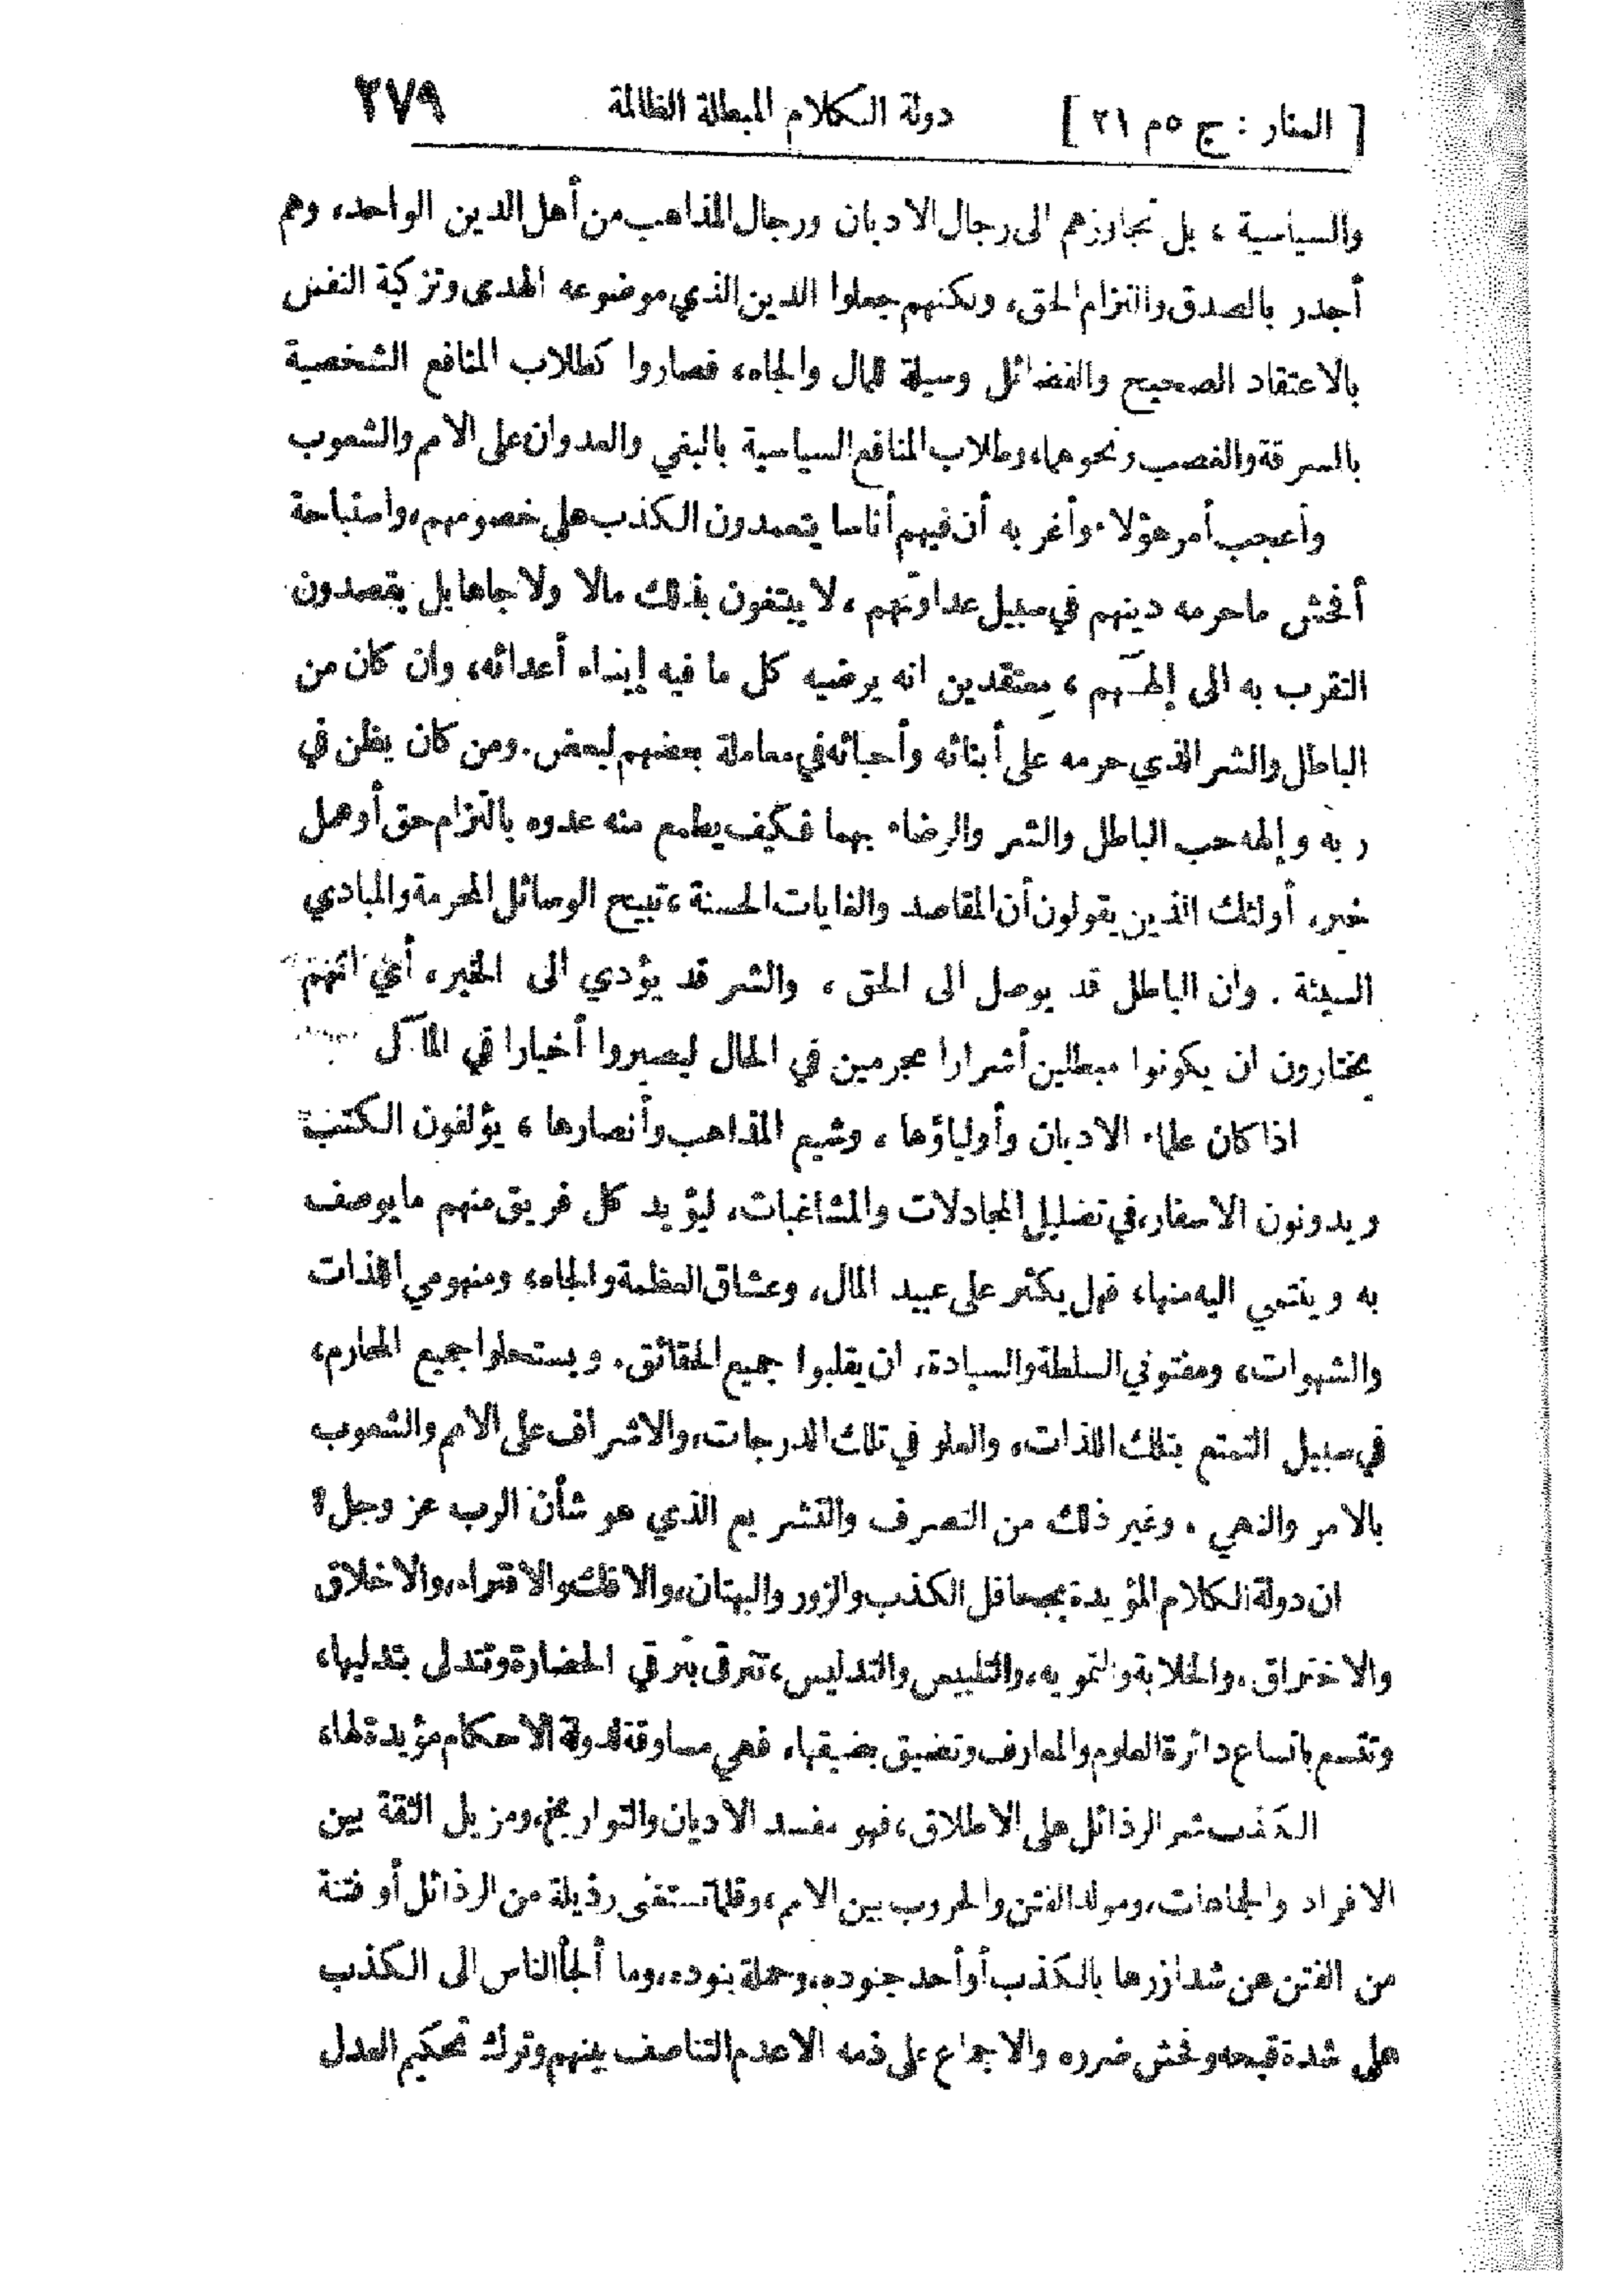 [ المنار : ج ٥ م ٢١ ] دولة الكلام المبطلة الظالمة ٢٧٩
والسياسية ، بل تجاوزهم الى رجال الاديان ورجال المذاهب من أهل الدين الواحد، وهم
أجدر بالصدق والتزام الحق، ولكنهم جعلوا الدين الذي موضوعه الهدى وتزكية النفس
بالاعتقاد الصحيح والفضائل وسيلة للمال والجاه، فصاروا كطلاب المنافع الشخصية
بالسرقة والغصب ونحوهما، وطلاب المنافع السياسية بالبغي والعدوان على الامم والشعوب
وأعجب أمر هؤلاء وأغربه أن فيهم أناسا يتعمدون الكذب على خصومهم، واستباحة
أفحش ما حرمه دينهم في سبيل عداوتهم ، لا يبتغون بذلك مالا ولا جاها بل يقصدون
التقرب به الى إلهتهم ، معتقدين انه يرضيه كل ما فيه إيذاء أعدائه، وان كان من
الباطل والشر الذي حرمه على أبنائه وأحبائه في معاملة بعضهم لبعض . ومن كان يظن في
ربه وإلهه حب الباطل والشر والرضاء بهما فكيف يطمع منه عدوه بالتزام حق أو عمل
خير، أولئك الذين يقولون أن المقاصد والغايات الحسنة ، تبيح الوسائل المحرمة والمبادي
السيئة . وان الباطل قد يوصل الى الحق ، والشر قد يؤدي الى الخير، أي انهم
يختارون ان يكونوا مبطلين أشرارا مجرمين في الحال ليصيروا أخيارا في المآل
اذا كان علماء الاديان وأولياؤها ، وشيع المذاهب وأنصارها ، يؤلفون الكتب
ويدونون الاسفار، في تضليل المجادلات والمشاغبات، ليؤيد كل فريق منهم ما يوصف
به وينتمي اليه منها، فهل يكثر على عبيد المال، وعشاق العظمة والجاه، ومنهومي اللذات
والشهوات، ومفتوني السلطة والسيادة، ان يقلبوا جميع الحقائق، ويستحلوا جميع المحارم،
في سبيل التمتع بتلك اللذات، والعلو في تلك الدرجات، والاشراف على الامم والشعوب
بالامر والنهي ، وغير ذلك من التصرف والتشريع الذي هو شأن الرب عز وجل؟
ان دولة الكلام المؤيدة بجحافل الكذب والزور والبهتان، والافك والافتراء، والاخلاق
والاختراق، والخلابة والتمويه، والتلبيس والتدليس ، تترقى بترقي الحضارة وتتدلى بتدليها،
وتتسع باتساع دائرة العلوم والمعارف وتضيق بضيقها، فهي مساوقة لدولة الاحكام مؤيدة لها،
الكذب شر الرذائل على الاطلاق، فهو مفسد الاديان والتواريخ، ومزيل الثقة بين
الافراد والجماعات، ومولد الفتن والحروب بين الامم، وقلما تستغني رذيلة من الرذائل أو فتنة
من الفتن عن شد ازرها بالكذب أو أحد جنوده، وحملة بنوده، وما ألجأ الناس الى الكذب
على شدة قبحه وفحش ضرره والاجماع على ذمه الا عدم التناصف بينهم وترك تحكيم العدل